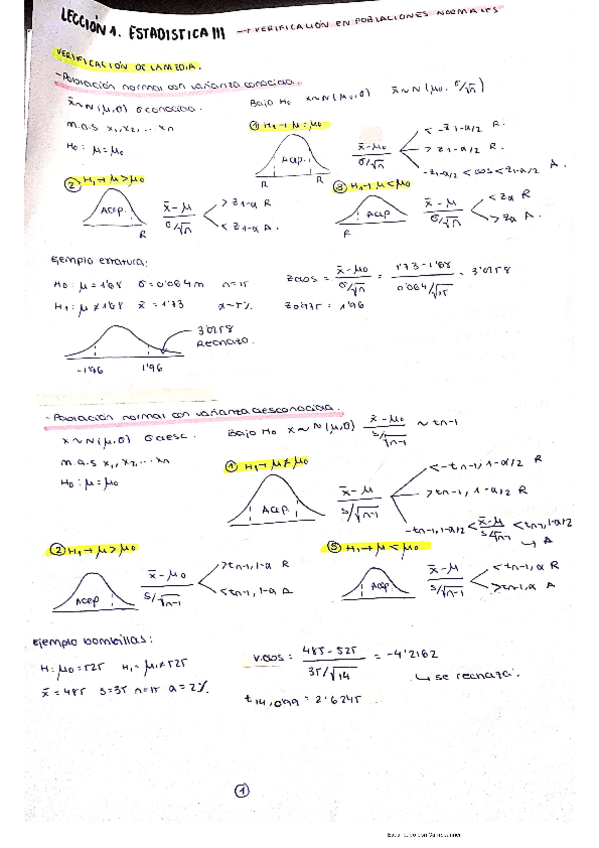 LECCIÓN 1. ESTADISTICA III → VERIFICACIÓN EN POBLACIONES NORMALES
VERIFICACIÓN DE LA MEDIA.
- Población normal con varianza conocida.
x̄~N(μ,σ) σ conocida. Bajo H₀ x~N(μ₀,σ) x̄~N(μ₀, σ/√n)
m.a.s x₁,x₂,... xn
H₀: μ=μ₀
① H₁→ μ=μ₀
Acep. R R
x̄-μ₀ / σ/√n
< -Z1-α/2 R.
> Z1-α/2 R.
-Z1-α/2 < cos < Z1-α/2 A.
② H₁→ μ>μ₀
Acep. R
x̄-μ / σ/√n
> Z1-α R
< Z1-α A.
③ H₁→ μ<μ₀
Acep
x̄-μ / σ/√n
< Zα R
> Zα A.
Ejemplo estatura:
H₀: μ=1'68 σ=0'064m n=15
H₁: μ≠1'68 x̄=1'73 α=5%
Zobs = x̄-μ₀ / σ/√n = 1'73-1'68 / 0'064/√15 = 3'0258
Z0'975 = 1'96
3'0258
Rechazo.
-1'96 1'96
- Población normal con varianza desconocida.
x~N(μ,σ) σ desc. Bajo H₀ x~N(μ₀,σ) x̄-μ₀ / s/√n-1 ~ tn-1
m.a.s x₁,x₂,... xn
H₀: μ=μ₀
① H₁→ μ≠μ₀
Acep
x̄-μ / s/√n-1
< -tn-1, 1-α/2 R
> tn-1, 1-α/2 R
-tn-1, 1-α/2 < x̄-μ / s/√n-1 < tn-1, 1-α/2
↳ A
② H₁→ μ>μ₀
Acep
x̄-μ₀ / s/√n-1
> tn-1, 1-α R
< tn-1, 1-α A
③ H₁→ μ<μ₀
Acep
x̄-μ / s/√n-1
< tn-1, α R
> tn-1, α A
Ejemplo bombillas:
H: μ₀=525 H₁=μ≠525
x̄=485 s=35 n=15 α=2%
V.obs = 485-525 / 35/√14 = -4'2762
↳ se rechaza.
t14, 0'99 = 2'6245
①